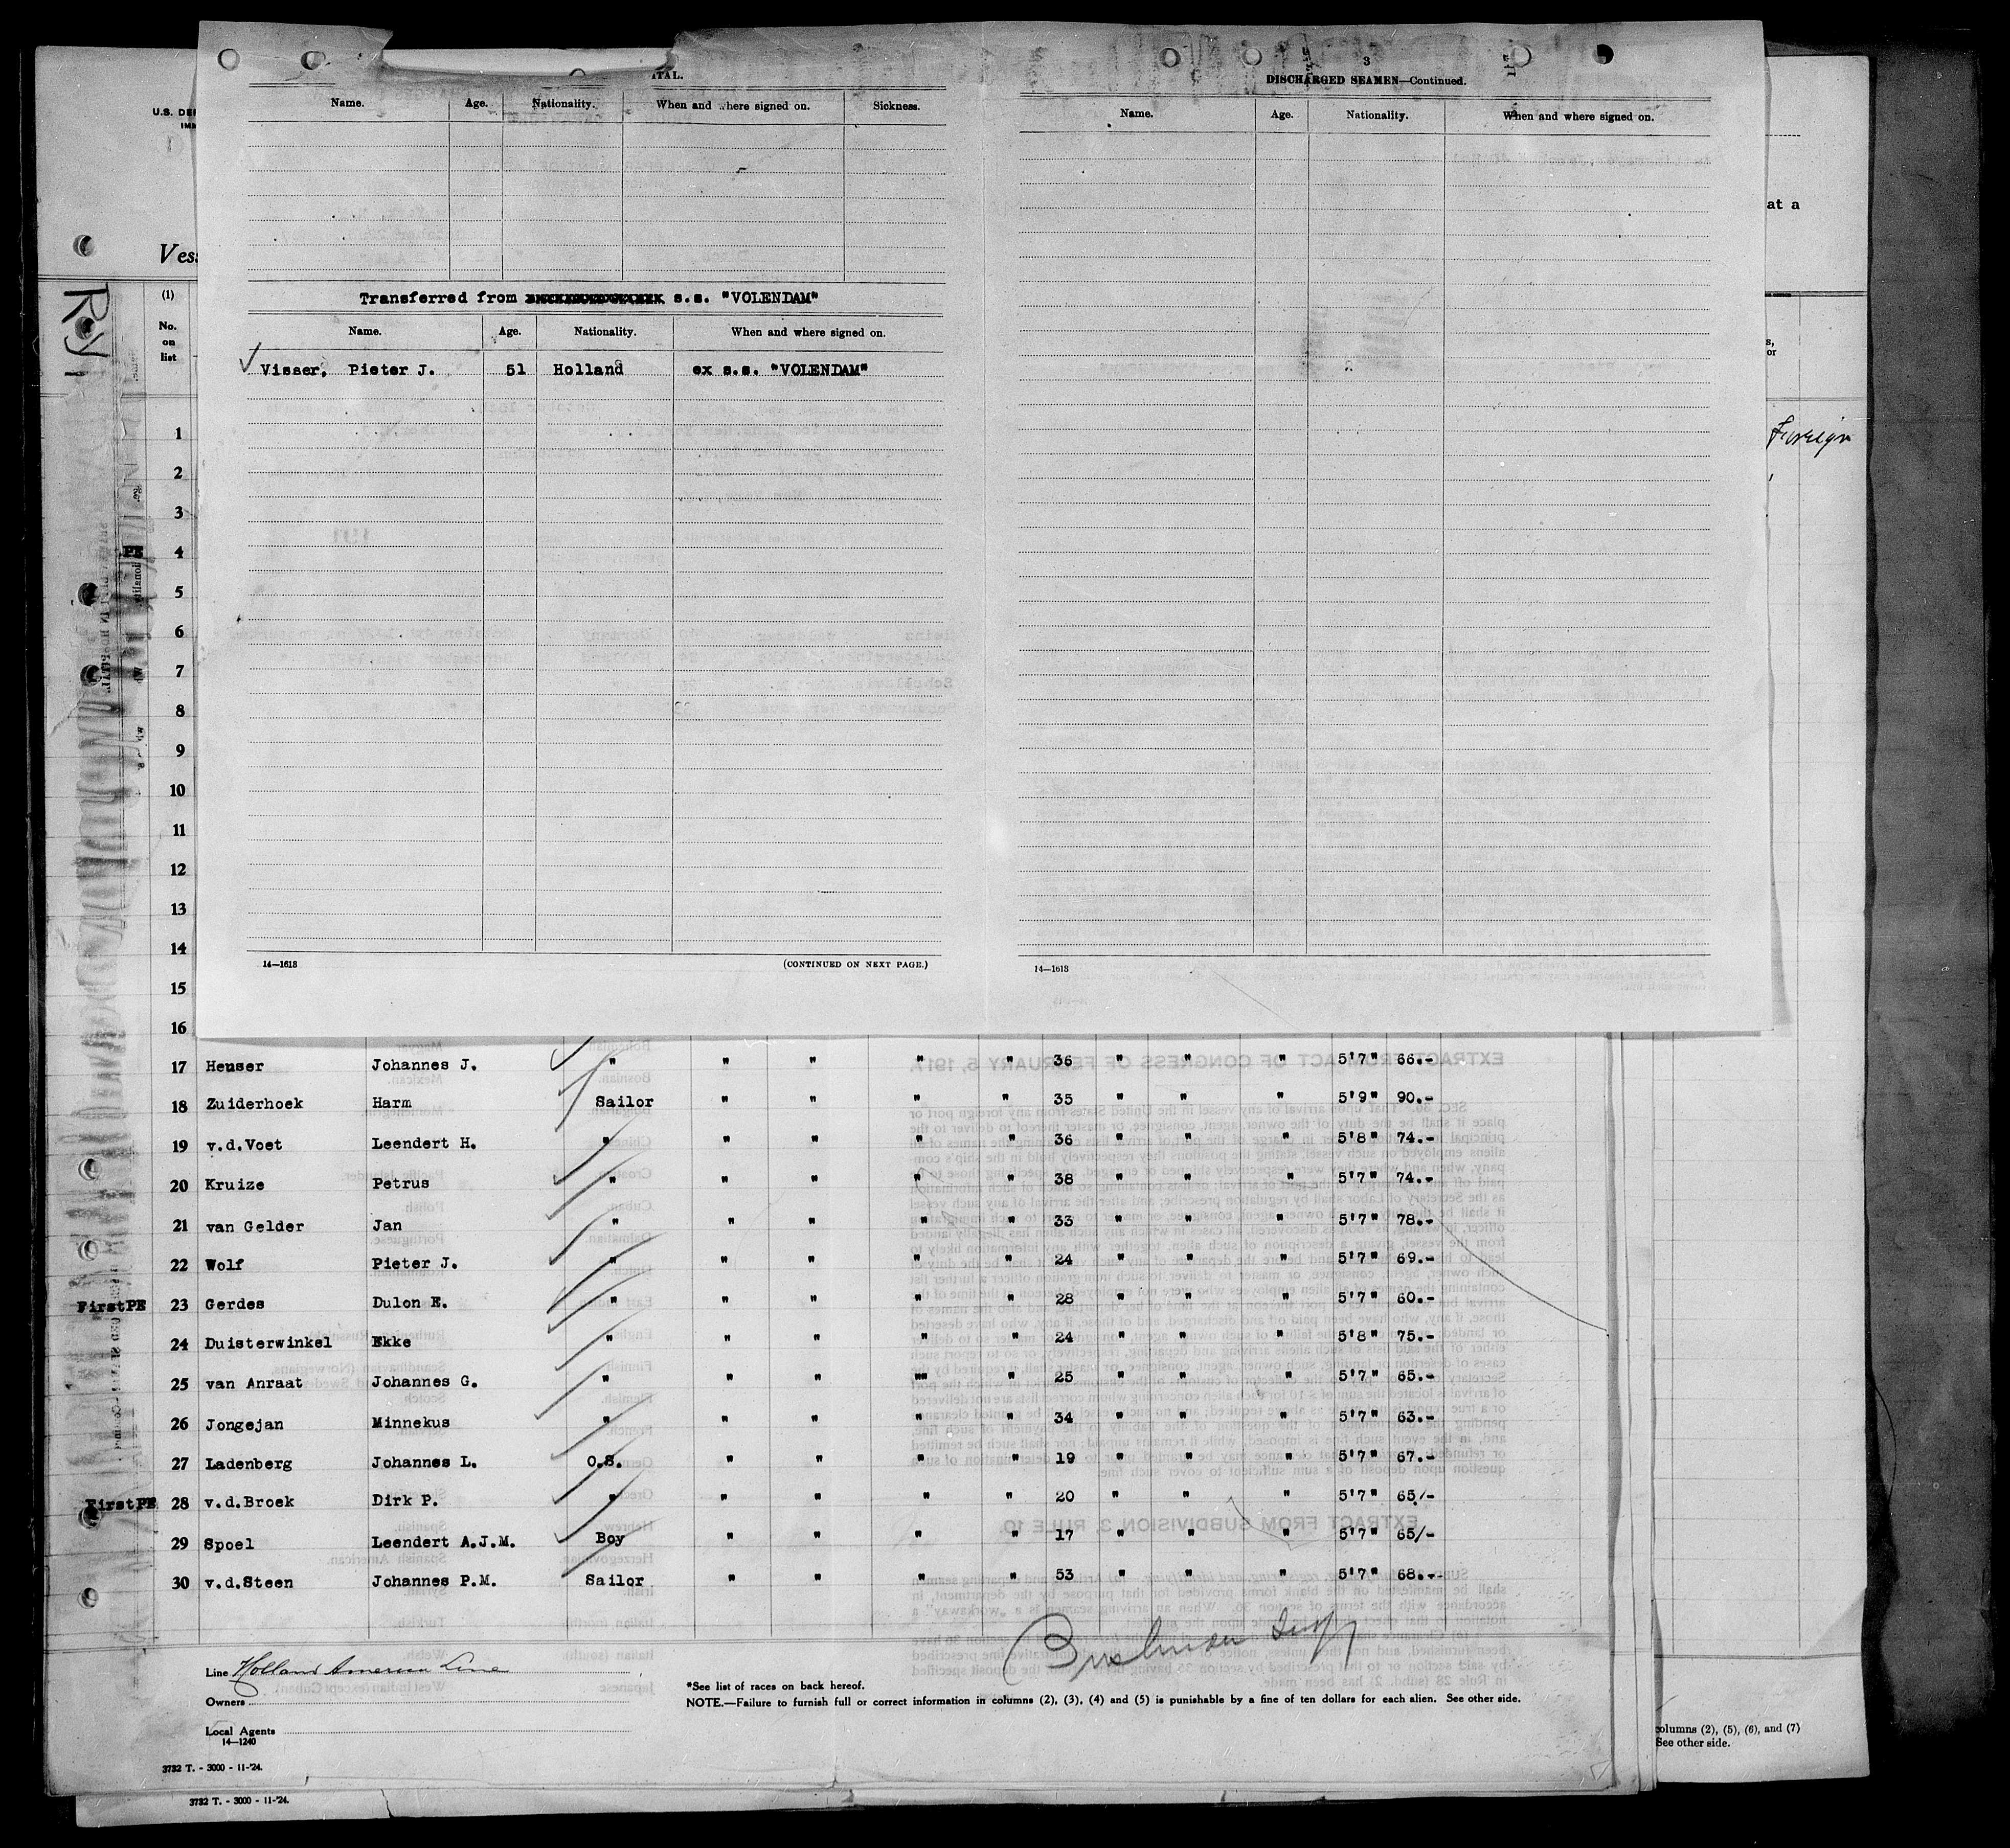 ITAL.
Name. Age. Nationality. When and where signed on. Sickness.
Transferred from s.s. "VOLENDAM"
Name. Age. Nationality. When and where signed on.
✓ Visser, Pieter J. 51 Holland ex s.s. "VOLENDAM"
14—1618 (CONTINUED ON NEXT PAGE.)
3
DISCHARGED SEAMEN—Continued.
Name. Age. Nationality. When and where signed on.
14—1618
U.S. DE
IM
Ves
(1)
No.
on
list
at a
s,
or
Foreign
1
2
3
PE 4
5
6
7
8
9
10
11
12
13
14
15
16
17 Heuser Johannes J. " " " " " 36 " " " 5'7" 66.-
18 Zuiderhoek Harm Sailor " " " " 35 " " " 5'9" 90.-
19 v.d.Voet Leendert H. " " " " " 36 " " " 5'8" 74.-
20 Kruize Petrus " " " " " 38 " " " 5'7" 74.-
21 van Gelder Jan " " " " " 33 " " " 5'7" 78.-
22 Wolf Pieter J. " " " " " 24 " " " 5'7" 69.-
FirstPE 23 Gerdes Dulon E. " " " " " 28 " " " 5'7" 60.-
24 Duisterwinkel Ekke " " " " " 24 " " " 5'8" 75.-
25 van Anraat Johannes G. " " " "" " 25 " " " 5'7" 65.-
26 Jongejan Minnekus " " " " " 34 " " " 5'7" 63.-
27 Ladenberg Johannes L. O.S. " " " " 19 " " " 5'7" 67.-
FirstPE 28 v.d.Broek Dirk P. " " " " " 20 " " " 5'7" 65/-
29 Spoel Leendert A.J.M. Boy " " " " 17 " " " 5'7" 65/-
30 v.d.Steen Johannes P.M. Sailor " " " " 53 " " " 5'7" 68.-
Line Holland America Line
Owners
Local Agents
14—1240
*See list of races on back hereof.
NOTE.—Failure to furnish full or correct information in columns (2), (3), (4) and (5) is punishable by a fine of ten dollars for each alien. See other side.
3732 T. - 3000 - 11-'24.
3732 T. - 3000 - 11-'24.
columns (2), (5), (6), and (7)
See other side.